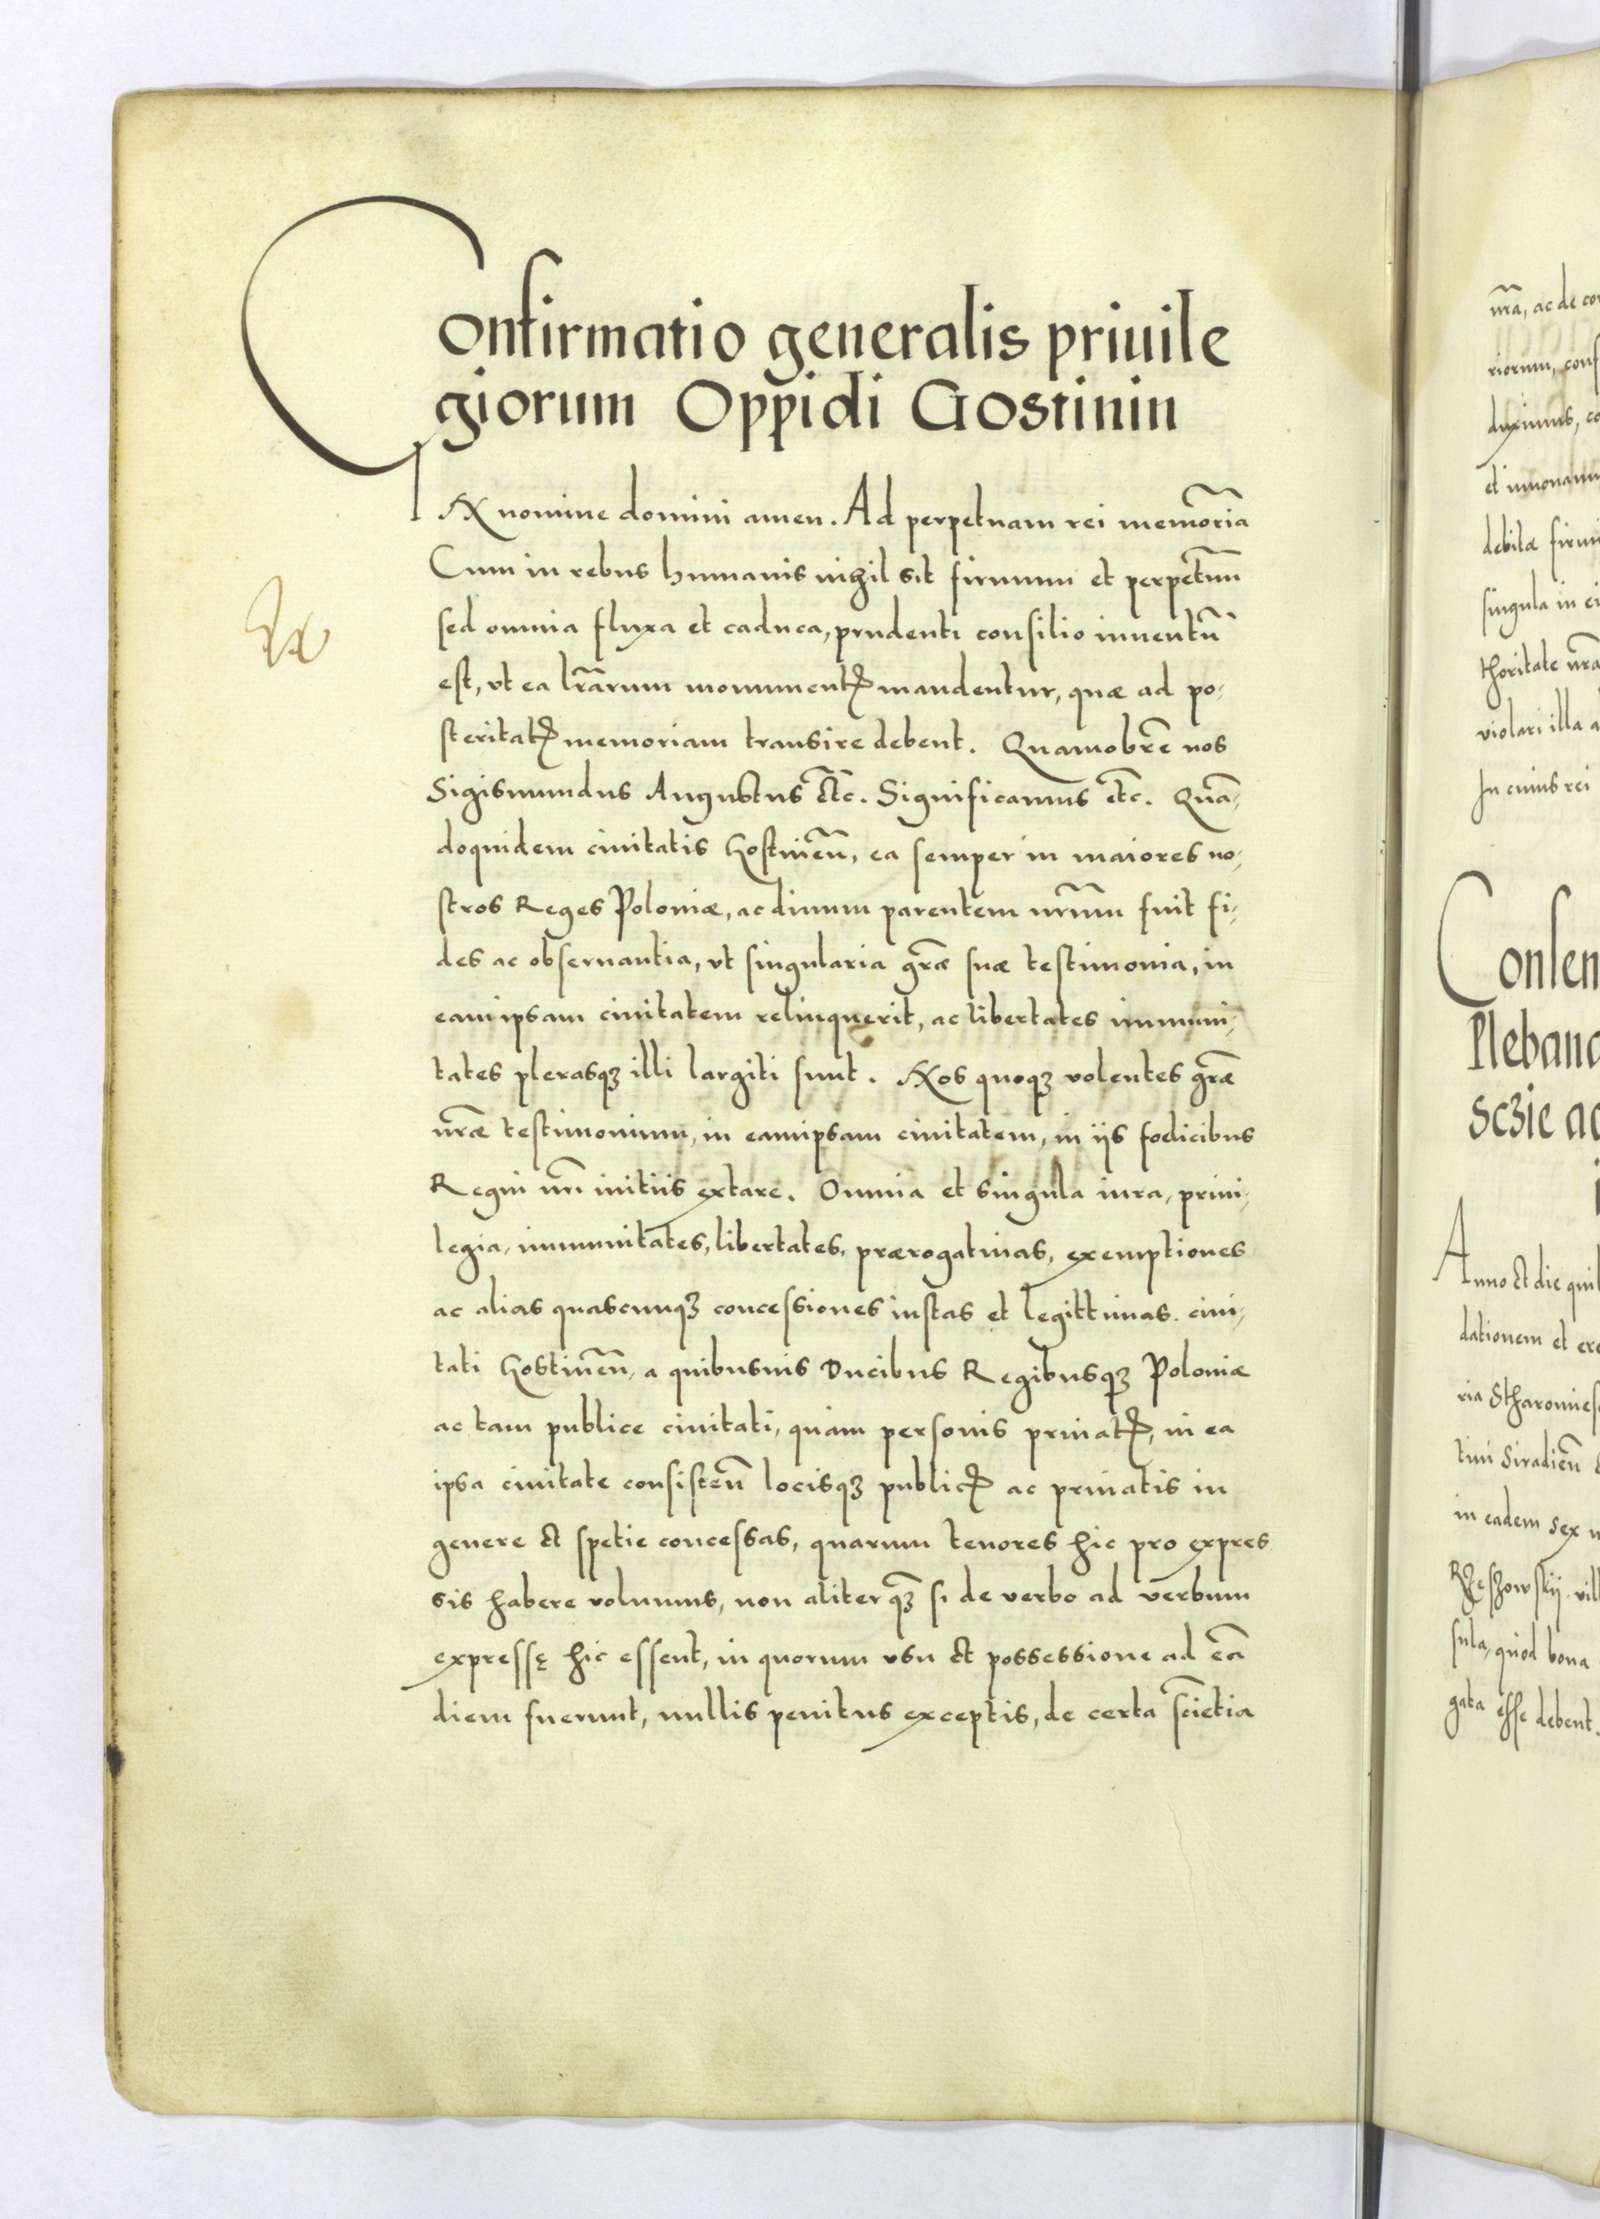 Confirmatio generalis priuile
giorum Oppidi Gostinin
IN nomine domini amen. Ad perpetuam rei memoriā
Cum in rebus humanis nihil sit firmum et perpetuum
sed omnia fluxa et caduca, prudenti consilio inuentū
est, vt ea lrārum monumentꝭ mandentur, quæ ad po-
steritatꝭ memoriam transire debent. Quamobrē nos
Sigismundus Augustus etc̄. Significamus etc̄. Quā-
doquidem ciuitatis Gostinēn̄, ea semper in maiores no-
stros Reges Poloniæ, ac diuum parentem nr̄um fuit fi-
des ac obseruantia, vt singularia gr̄æ suæ testimonia, in
eam ipsam ciuitatem relinquerit, ac libertates immuni-
tates plerasqꝫ illi largiti sunt. Nos quoqꝫ volentes gr̄æ
nr̄æ testimonium, in eamipsam ciuitatem, in ijs foelicibus
Regni nr̄i initiis extare. Omnia et singula iura, priui-
legia, immunitates, libertates, prærogatiuas, exemptiones
ac alias quascunqꝫ concessiones iustas et legittimas. ciui-
tati Gostinēn̄, a quibusuis Ducibus Regibusqꝫ Poloniæ
ac tam publice ciuitati, quam personis priuatꝭ, in ea
ipsa ciuitate consisten̄ locisqꝫ publicꝭ ac priuatis in
genere et spetie concessas, quarum tenores hic pro expres
sis habere volumus, non aliter qꝫ si de verbo ad verbum
expressę hic essent, in quorum vsu et possessione ad eā
diem fuerunt, nullis penitus exceptis, de certa scīetia
nr̄a, ac de
riorum,
duximus,
debitæ
singula in
thoritate nr̄a
violari illa
In cuius rei
Plebano
sczie
Anno et die
dationem et
ria
tini Siradien̄
in eadem sex
sula, quod bona
gata esse debent.